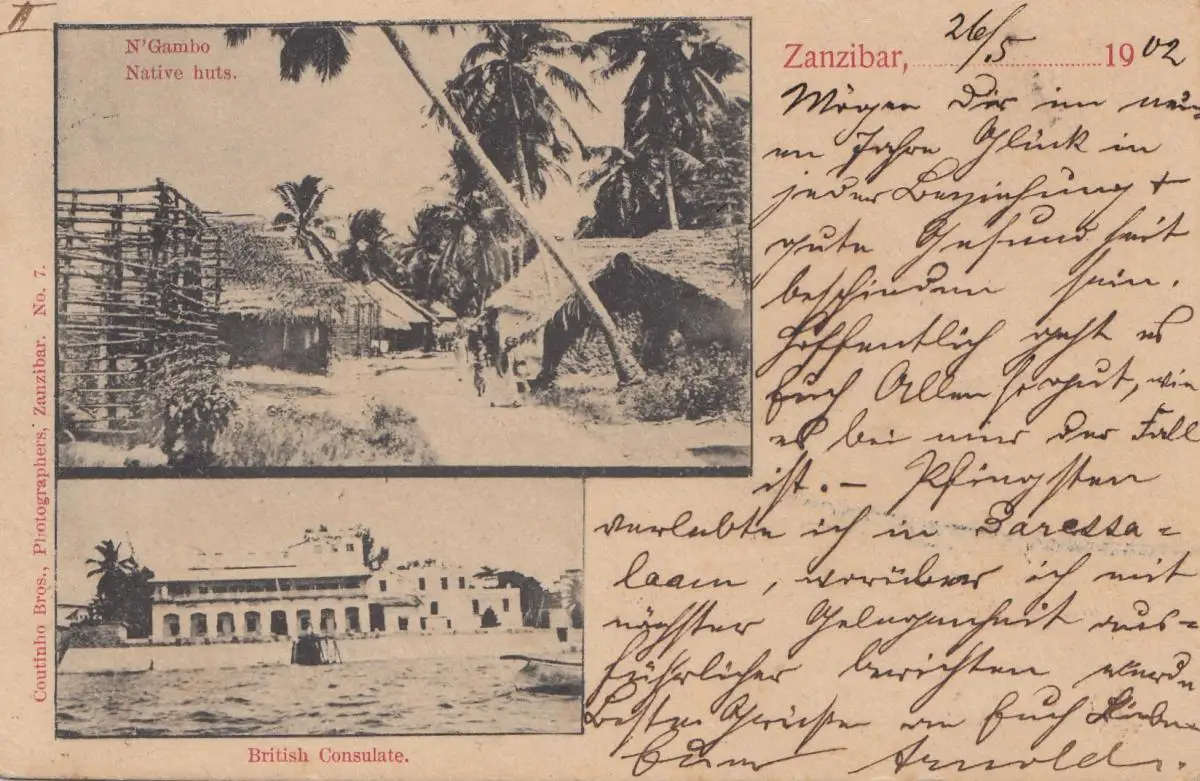 II
N'Gambo
Native huts.
Coutinho Bros., Photographers, Zanzibar. No. 7.
British Consulate.
Zanzibar, 26/5 1902
Mögen Dir im neu-
en Jahre Glück in
jeder Beziehung +
gute Gesundheit
beschieden sein.
Hoffentlich geht es
Euch Allen so gut, wie
es bei mir der Fall
ist. – Pfingsten
verlebte ich in Daressa-
laam, worüber ich mit
nächster Gelegenheit aus-
führlicher berichten werde
Beste Grüsse an Euch Lieben
Euer Arnold.